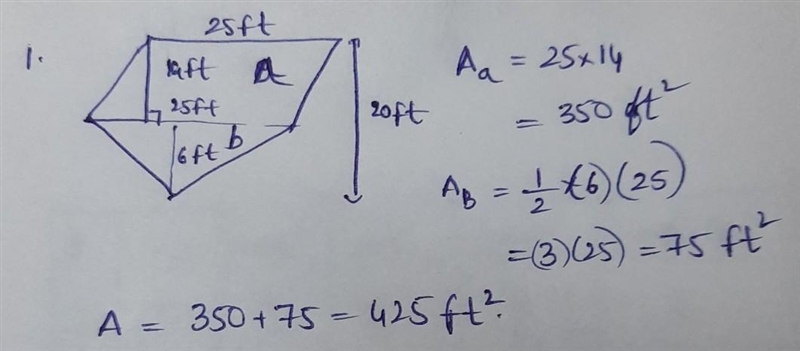 1.
25ft
14ft
a
25ft
b
6ft
20ft
Aa = 25×14
= 350 ft²
AB = 1/2 (6)(25)
= (3)(25) = 75 ft²
A = 350 + 75 = 425 ft².